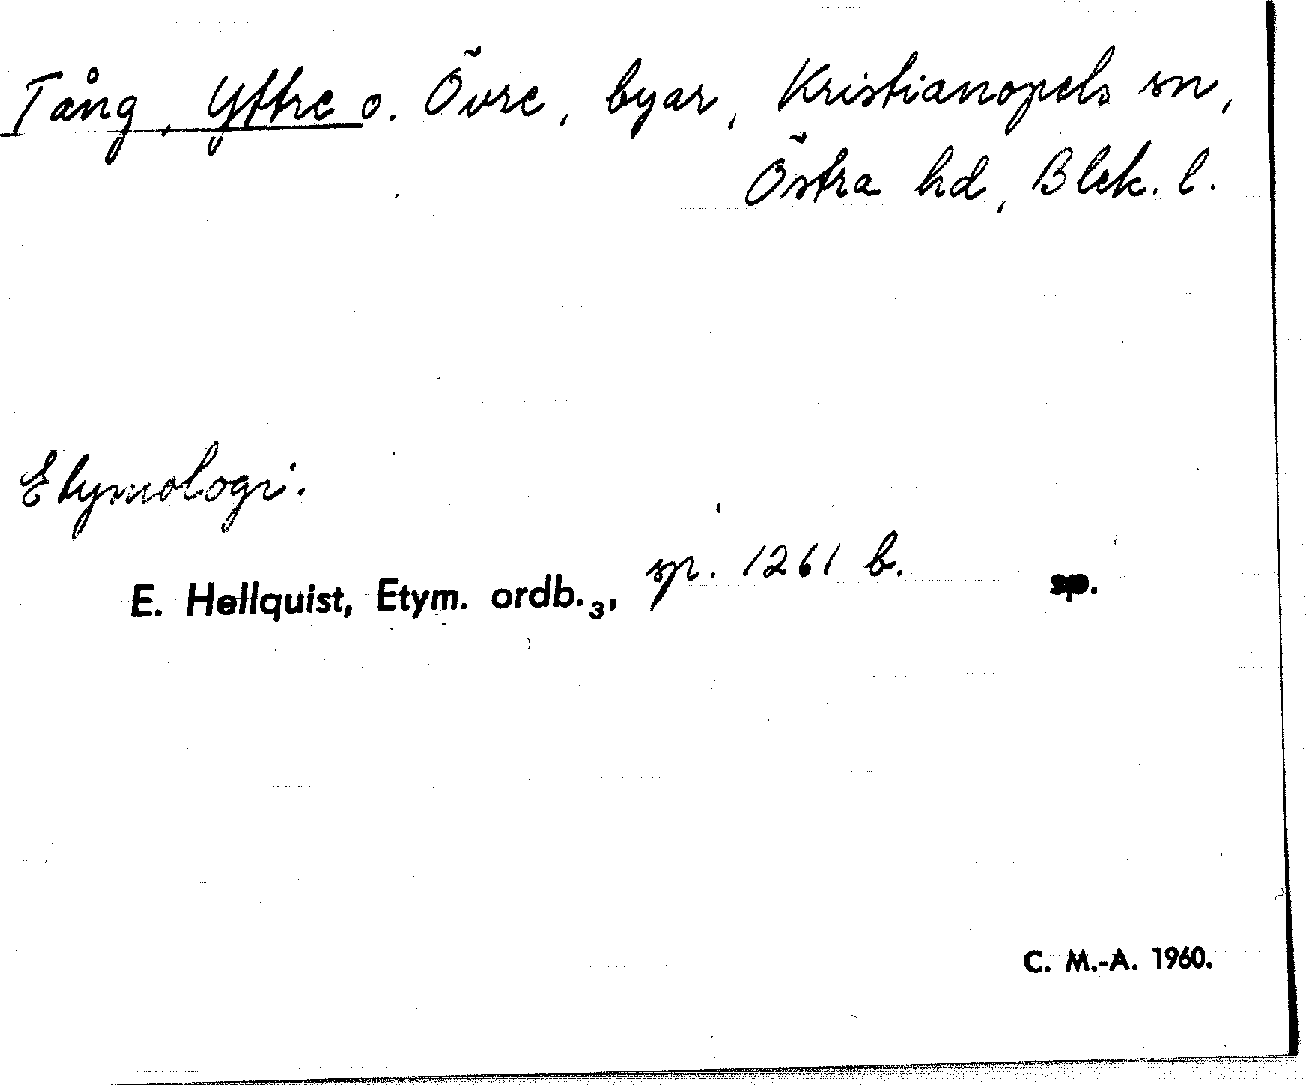 Tång, Yttre o. Övre, byar, Kristianopels sn,
Östra hd, Blek. l.
Etymologi.
E. Hellquist, Etym. ordb.₃, sp. 1261 b. sp.
C. M.-A. 1960.